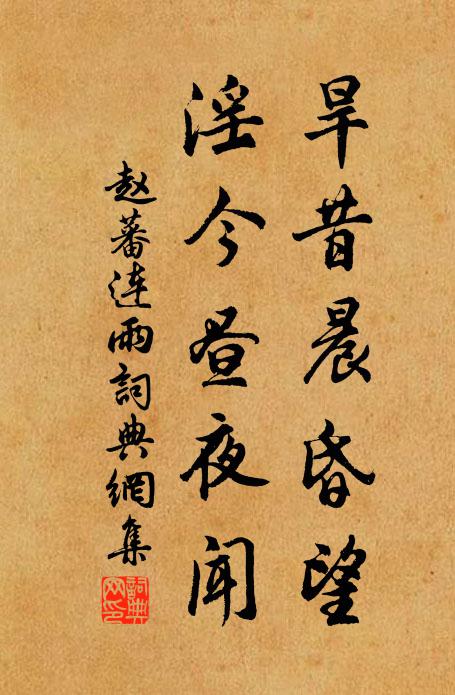 旱昔晨昏望
淫今昼夜闻
赵蕃连雨詞典網集
詞典网印